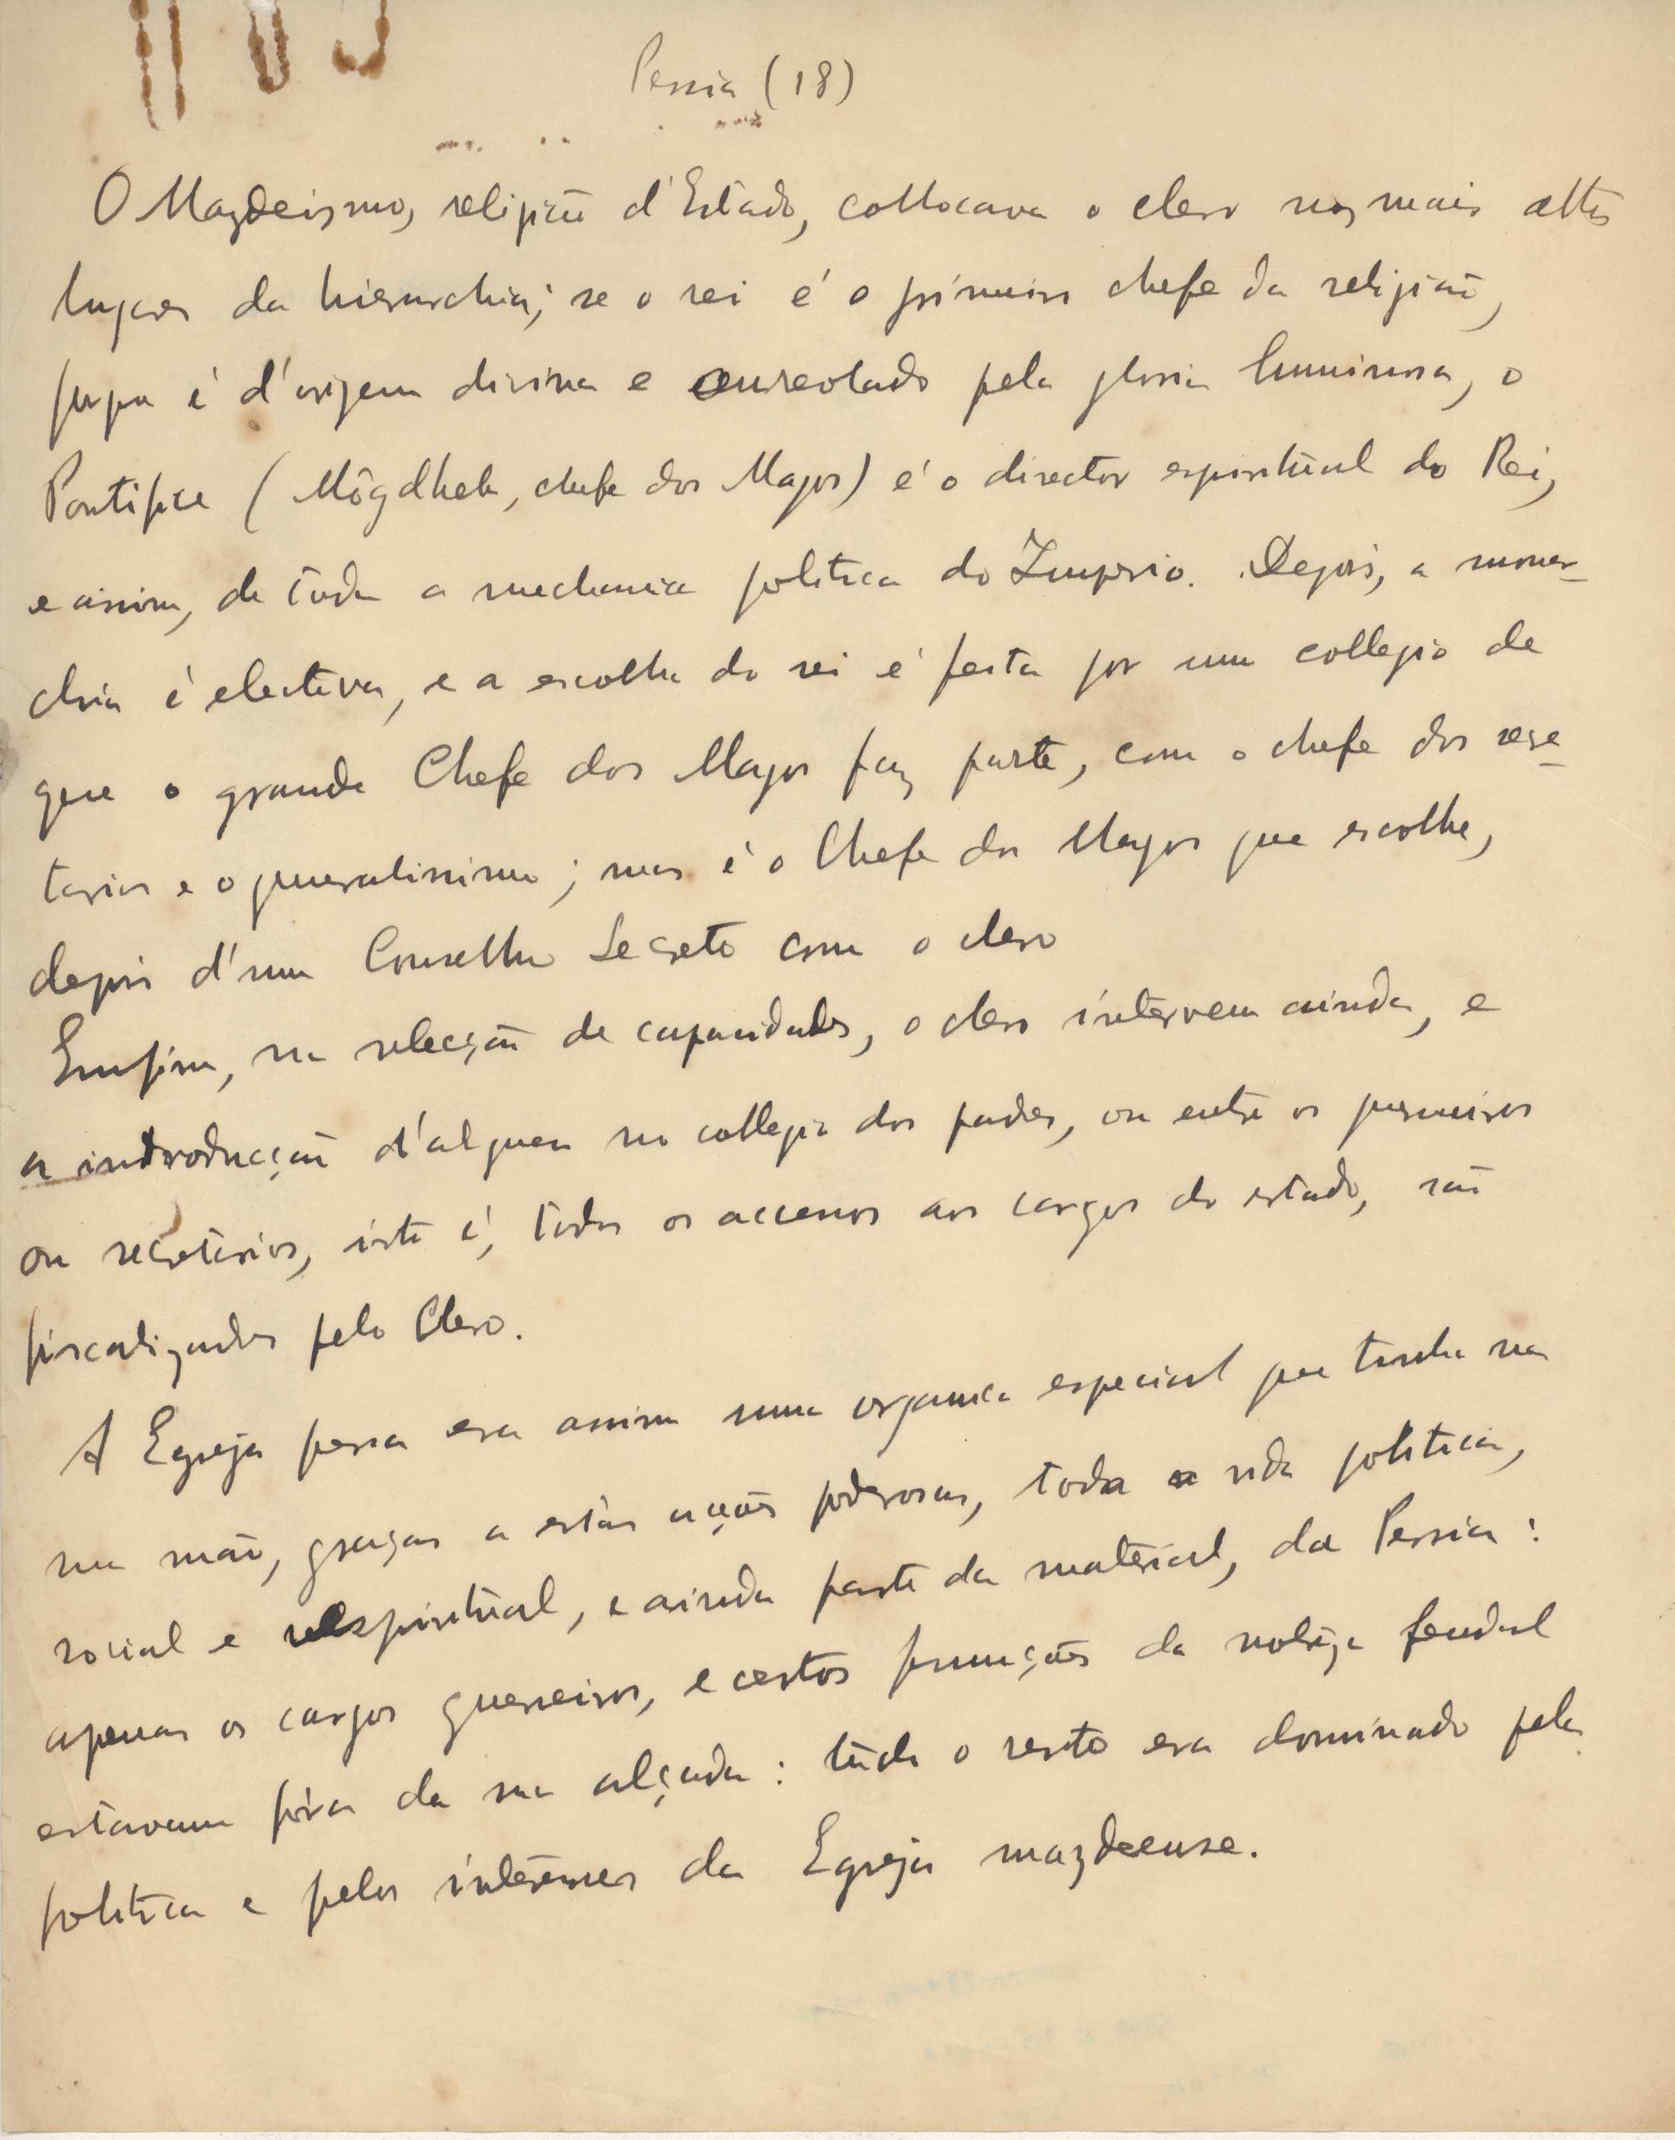 Persia (18)
O Mazdeismo, religião d'Estado, collocava o clero nos mais altos
lugares da hierarchia; se o rei é o primeiro chefe da religião,
porque é d'origem divina e aureolado pela gloria luminosa, o
Pontifice (Môgdheh, chefe dos Magos) é o director espiritual do Rei,
e assim, de toda a mechanica politica do Imperio. Depois, a monar-
chia é electiva, e a escolha do rei é feita por um collegio de
que o grande Chefe dos Magos faz parte, com o chefe dos secre-
tarios e o generalissimo; mas é o Chefe dos Magos que escolhe,
depois d'um Conselho Secreto com o clero
Emfim, na selecção de capacidades, o clero intervem ainda, e
a introducção d'alguem no collegio dos padres, ou entre os guerreiros
ou secretarios, isto é, todos os accessos aos cargos do estado, são
fiscalizados pelo Clero.
A Egreja persa era assim uma organica especial que tinha na
sua mão, graças a estas acções poderosas, toda a vida politica,
social e espiritual, e ainda parte da material, da Persia:
apenas os cargos guerreiros, e certas funcções da nobreza feudal
estavam fóra da sua alçada: tudo o resto era dominado pela
politica e pelos interesses da Egreja mazdeense.